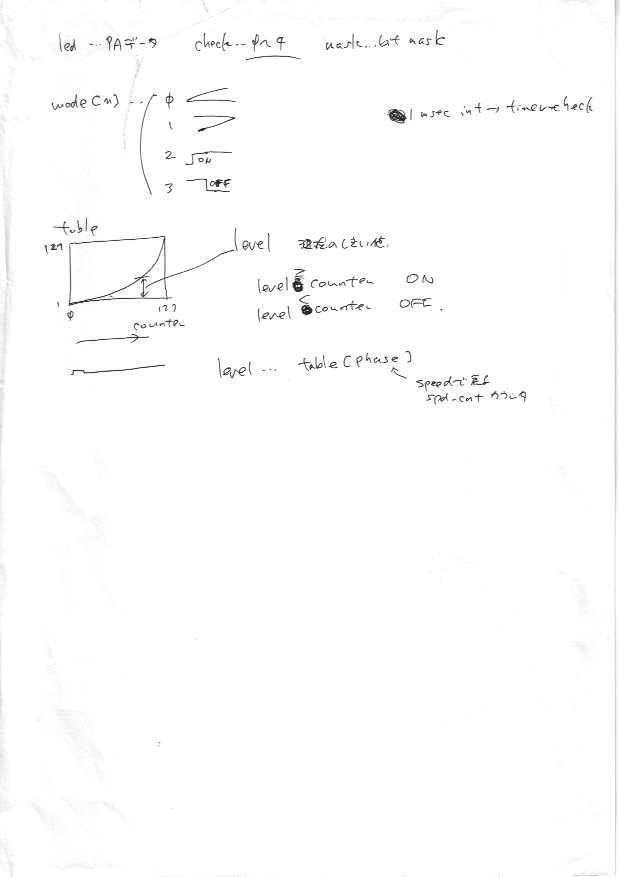 led … PAデータ check… φ〜4 mask…bit mask
mode(n) … φ
1 msec int→timer-check
1
2 ON
3 OFF
table
127
level 現在のしきい値.
1
φ 127
counter
level ≧ counter ON
level < counter OFF.
level … table(phase)
speedで変る
spd-cnt カウンタ